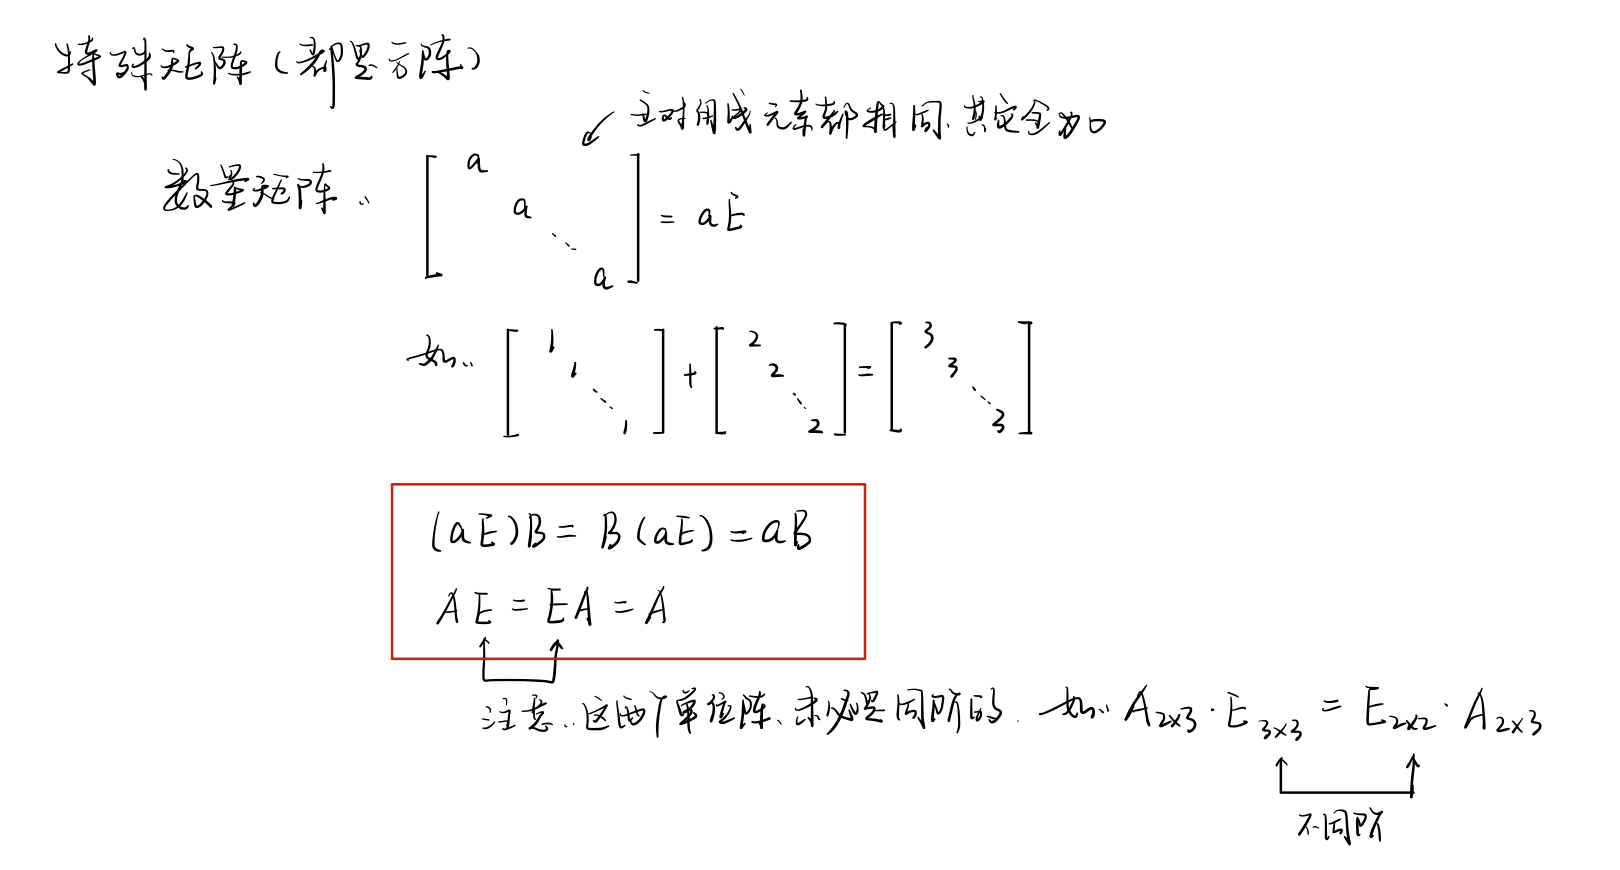 特殊矩阵（都是方阵）
主对角线元素都相同.其它全为0
数量矩阵：
a
a
⋱
a
= aE
如：
1
1
⋱
1
+
2
2
⋱
2
=
3
3
⋱
3
(aE)B = B(aE) = aB
AE = EA = A
注意：这两个单位阵、未必是同阶的. 如：A₂ₓ₃ · E₃ₓ₃ = E₂ₓ₂ · A₂ₓ₃
不同阶